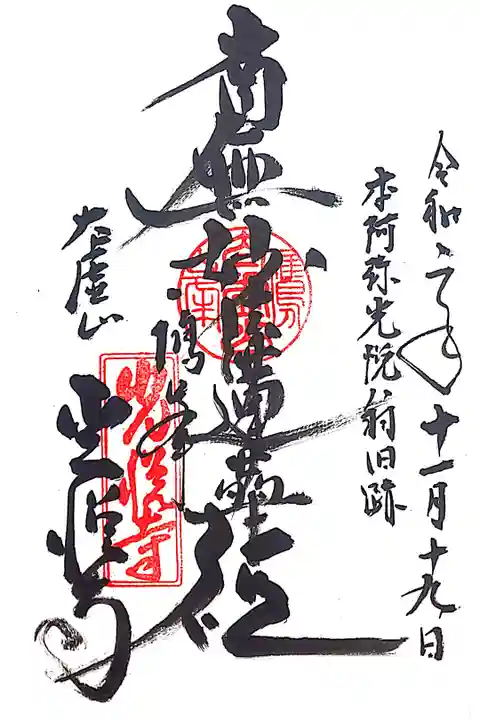 令和二年十一月十九日
本阿弥光悦翁旧跡
南無妙法蓮華経
大虚山
光悦寺
光悦寺